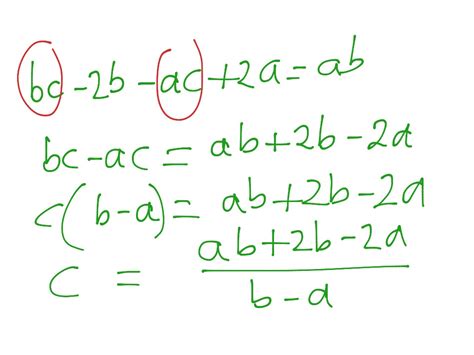 bc - 2b - ac + 2a = ab
bc - ac = ab + 2b - 2a
c(b - a) = ab + 2b - 2a
c = (ab + 2b - 2a) / (b - a)